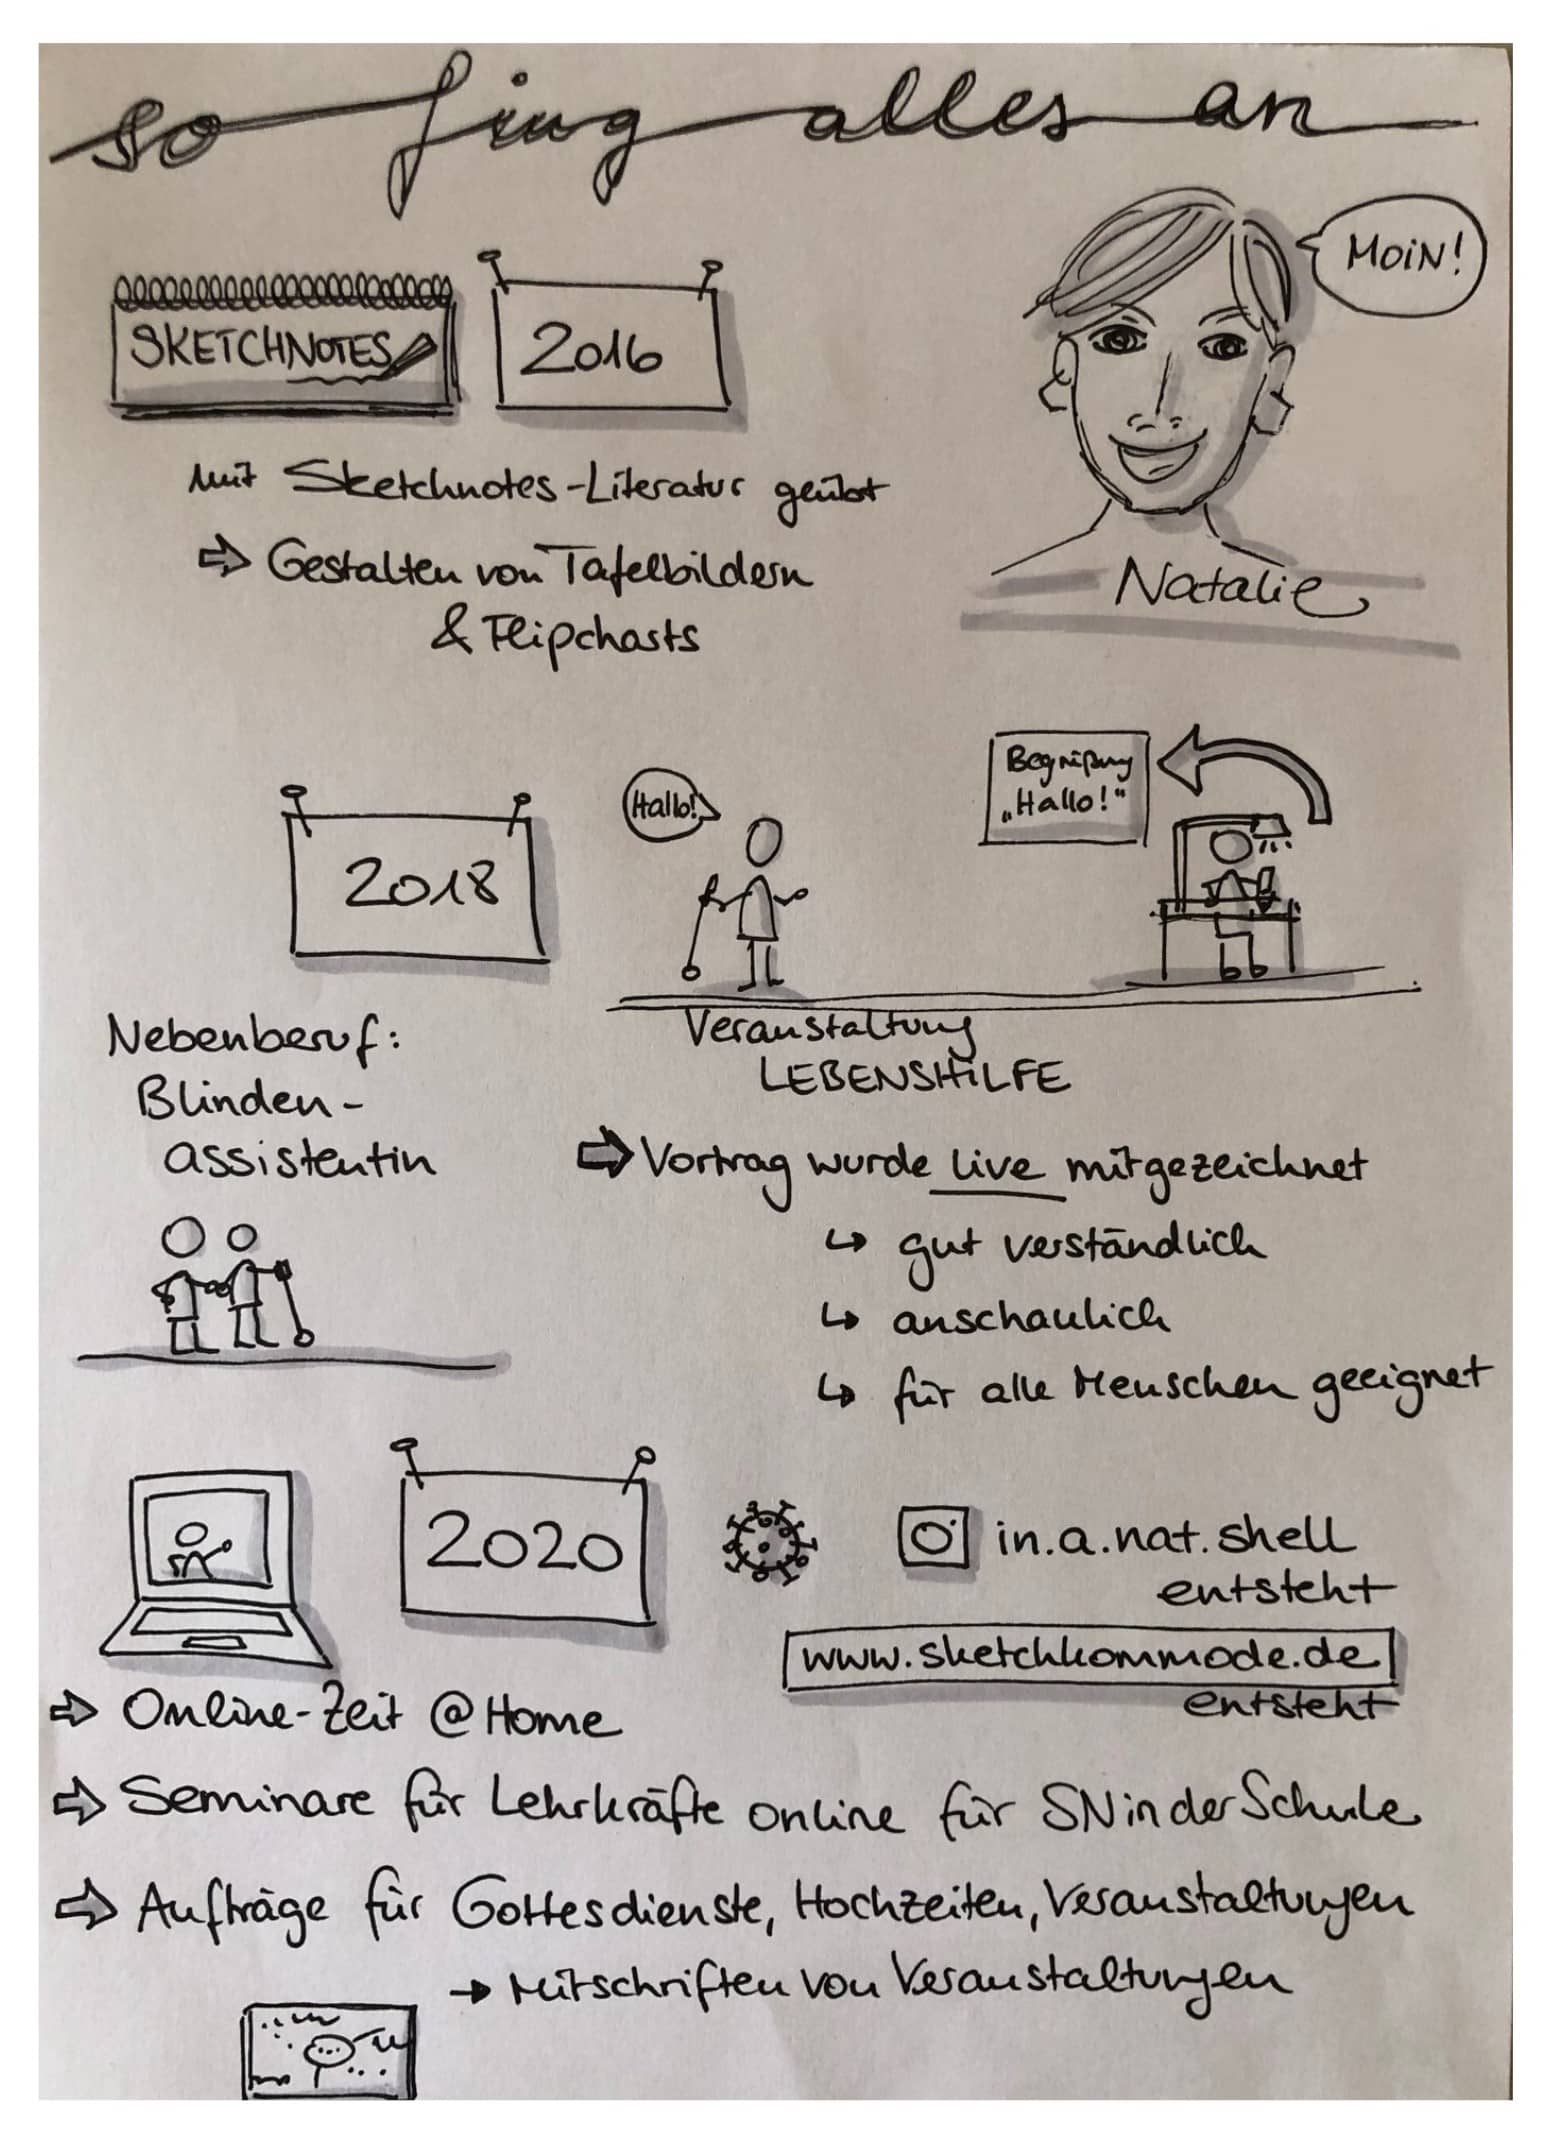 so fing alles an
MOIN!
SKETCHNOTES
2016
Natalie
mit Sketchnotes-Literatur geübt
⇨ Gestalten von Tafelbildern
& Flipcharts
2018
Hallo!
Begrüßung
„Hallo!“
Veranstaltung
LEBENSHILFE
Nebenberuf:
Blinden-
assistentin
⇨ Vortrag wurde live mitgezeichnet
↳ gut verständlich
↳ anschaulich
↳ für alle Menschen geeignet
2020
in.a.nat.shell
entsteht
www.sketchkommode.de
entsteht
⇨ Online-Zeit @Home
⇨ Seminare für Lehrkräfte online für SNinderSchule
⇨ Aufträge für Gottesdienste, Hochzeiten, Veranstaltungen
→ Mitschriften von Veranstaltungen